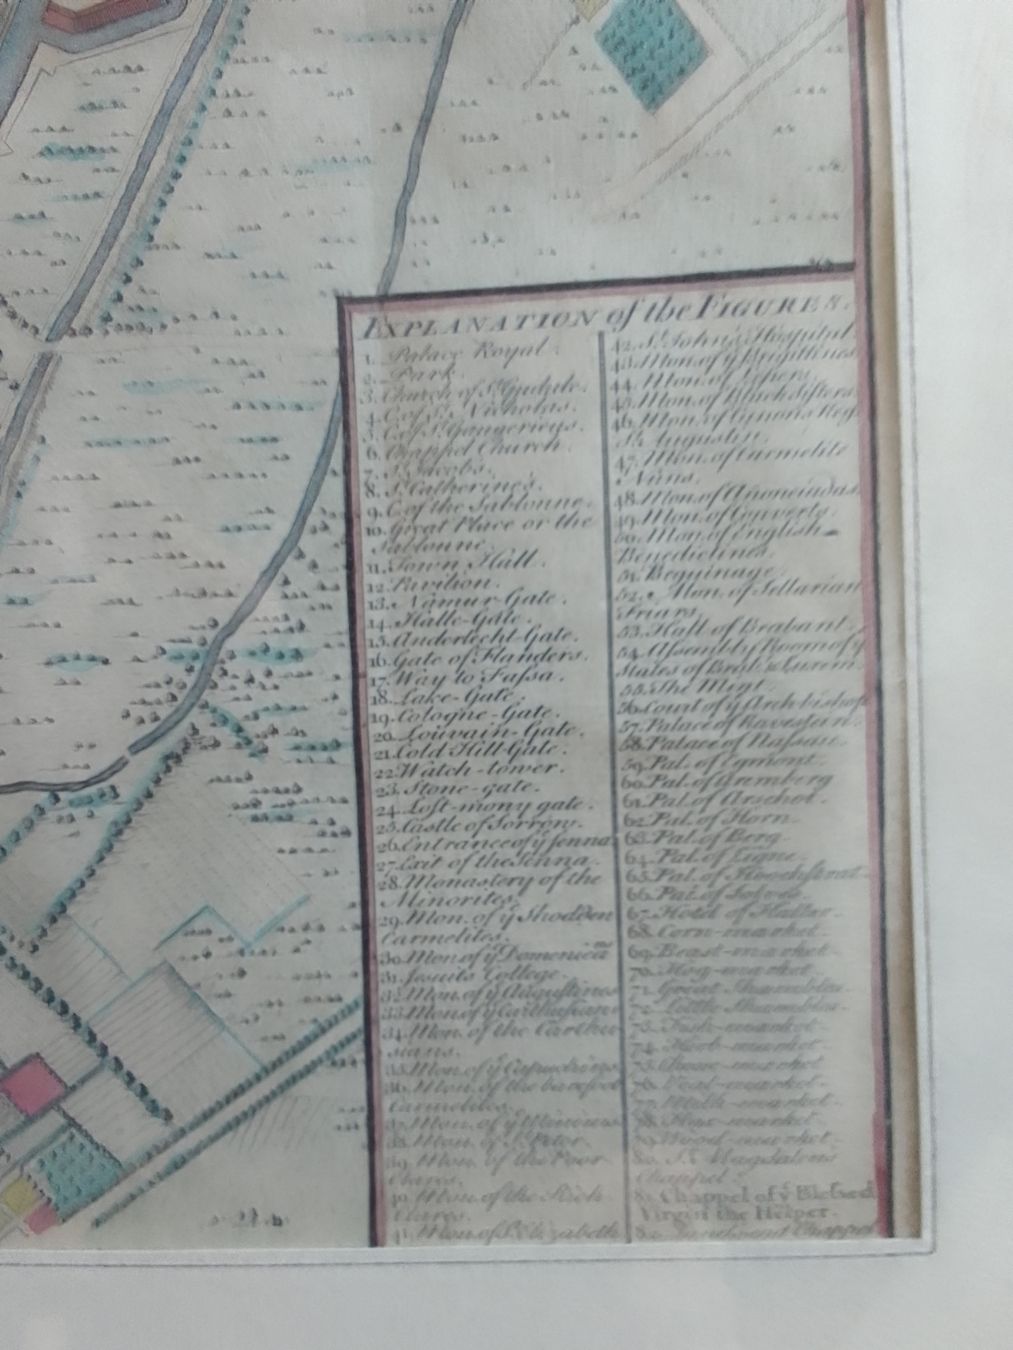 EXPLANATION of the FIGURES.
1. Palace Royal.
2. Park.
3. Church of St. Gudule.
4. C. of St. Nicholas.
5. C. of St. Gaugericus.
6. Chappel Church.
7. St. Jacobs.
8. St. Catherine's.
9. C. of the Sablonne.
10. Great Place or the
Sablonne.
11. Town Hall.
12. Pavilion.
13. Namur-Gate.
14. Halle-Gate.
15. Anderlecht-Gate.
16. Gate of Flanders.
17. Way to Fassa.
18. Lake-Gate.
19. Cologne-Gate.
20. Louvain-Gate.
21. Cold Hill-Gate.
22. Watch-tower.
23. Stone-gate.
24. Lost-mony gate.
25. Castle of Sorrow.
26. Entrance of ye Senna.
27. Exit of the Senna.
28. Monastery of the
Minorites.
29. Mon. of ye Shodden
Carmelites.
30. Mon of ye Domenica
31. Jesuits College.
32. Mon. of ye Augustines
33. Mon of ye
34. Mon. of the Carthu-
sians.
35. Mon. of ye Capuchins
36. Mon. of the barefoot
Carmelites.
37. Mon. of ye Minims
38. Mon. of St. Peter.
39. Mon. of the Poor
Clares.
40. Mon. of the Rich
Clares.
41. Mon of St. Elizabeth
42. St. John's Hospital.
43. Mon. of ye Brigittines
44. Mon. of Lepers.
45. Mon. of Black Sisters
46. Mon. of Regr
St. Augustin.
47. Mon. of Carmelite
Nuns.
48. Mon. of
49. Mon. of Converts.
50. Mon. of English
Benedictines.
51. Begginage.
52. Mon. of
Friars.
53. Hall of Brabant.
54. Assembly Room of ye
States of Brab. & Luxem.
55. The Mint.
56. Court of ye Archbishop
57. Palace of Ravestein.
58. Palace of Nassau.
59. Pal. of Egmont.
60. Pal. of Aremberg
61. Pal. of Arschot.
62. Pal. of Horn.
63. Pal. of Berg.
64. Pal. of Ligne.
65. Pal. of Hoochstrat.
66. Pal. of
67. Hotel of
68. Corn-market.
69. Beast-market.
70. Hog-market.
71. Great Shambles.
72. Little Shambles.
73. Fish-market.
74. Herb-market
75. Cheese-market
76. market.
77. Milk-market.
78. market.
79. Wood-market.
80. St. Magdalens
Chappel.
81. Chappel of ye Blessed
Virgin the Helper.
82. Chappel